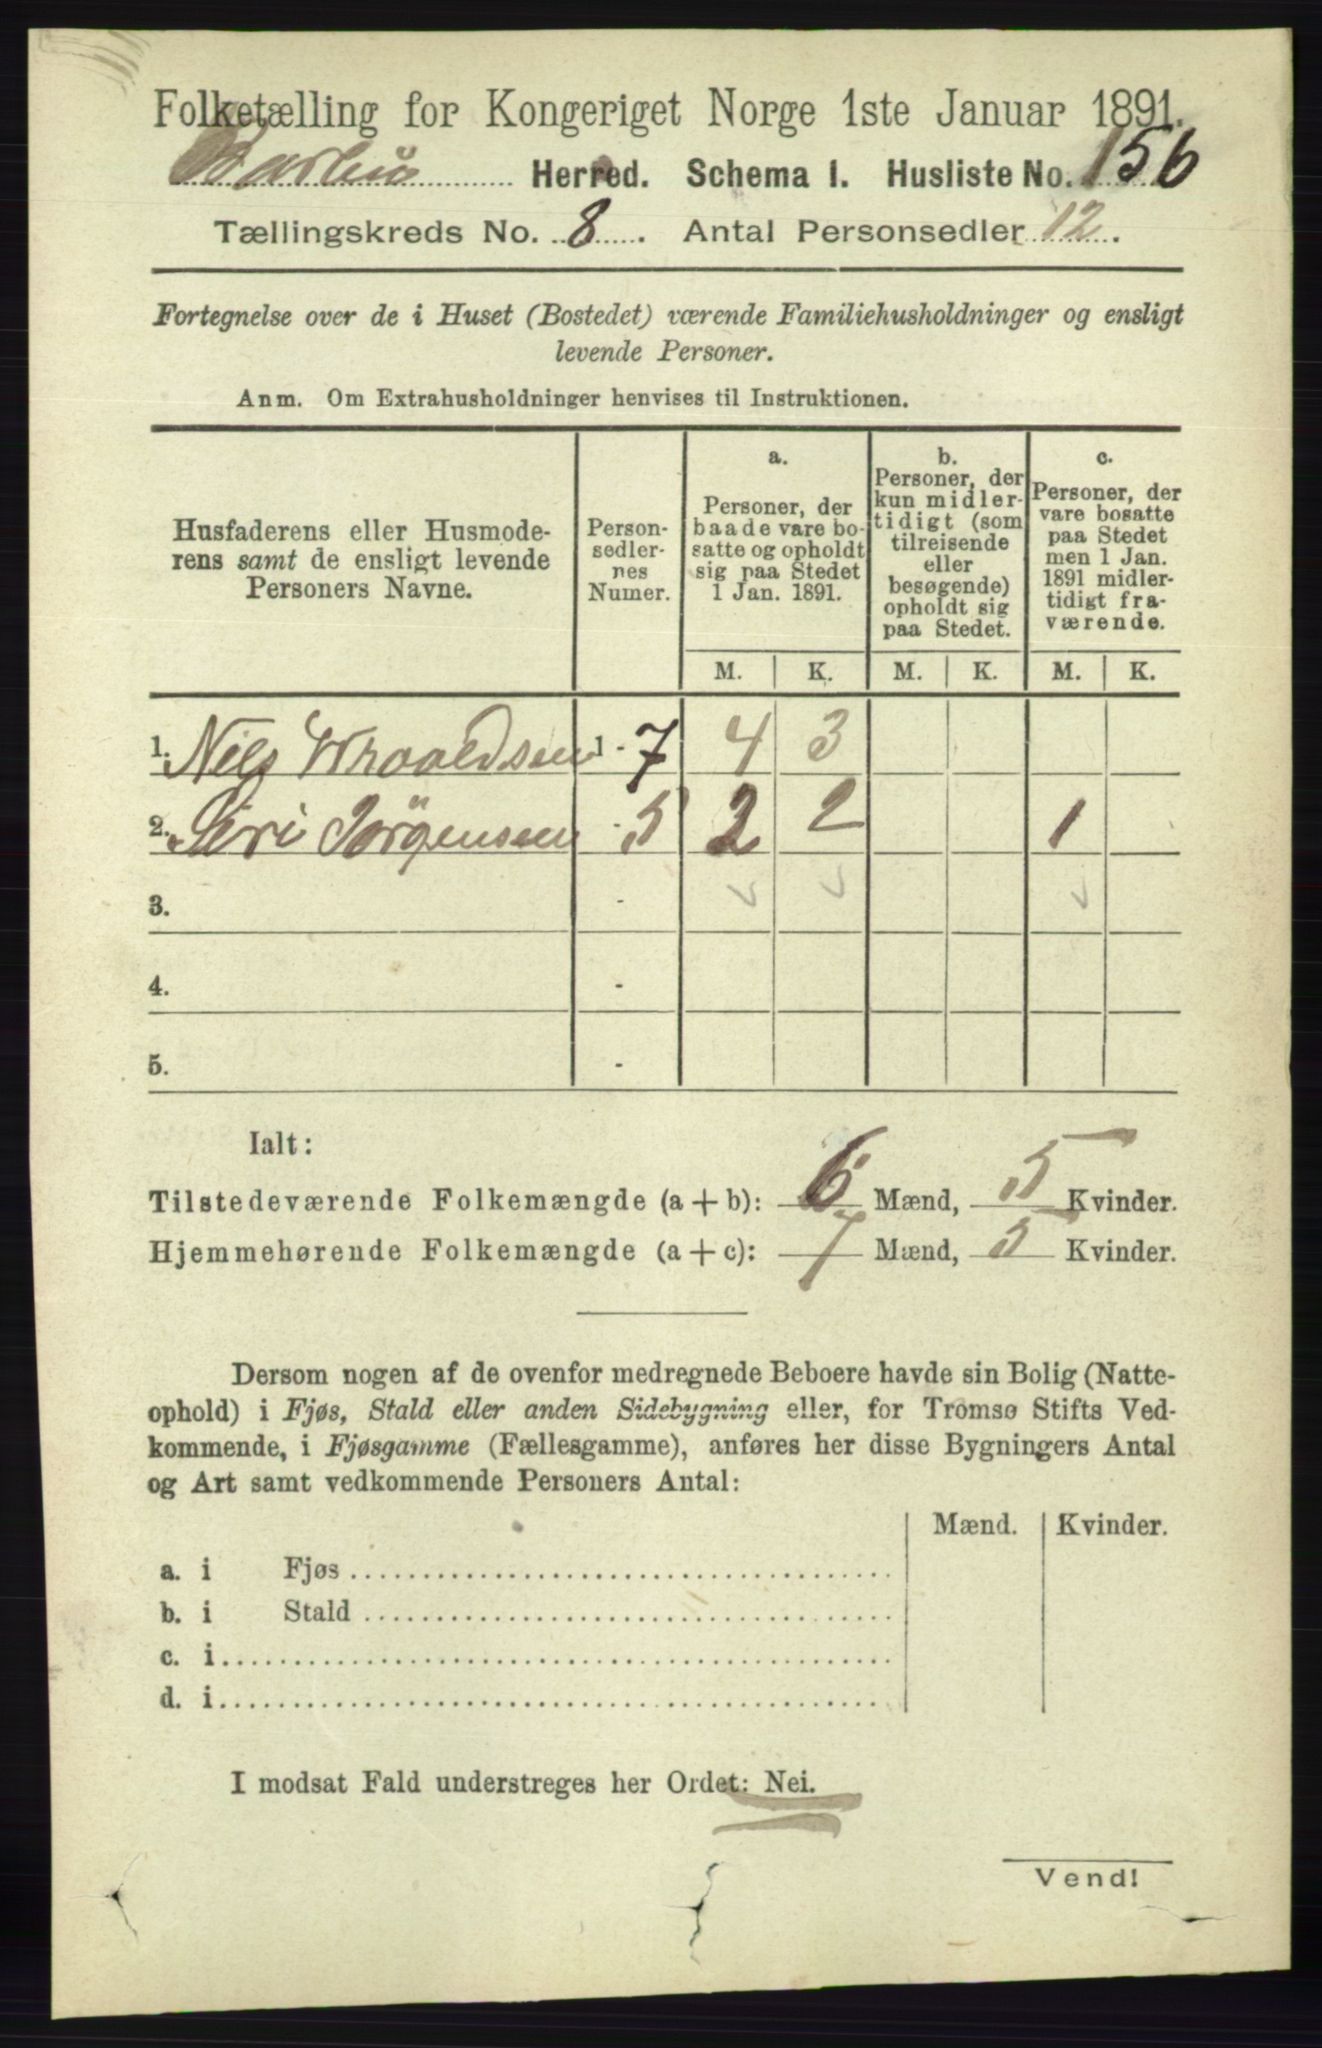 Folketælling for Kongeriget Norge 1ste Januar 1891.
Barbu Herred. Schema 1. Husliste No. 156
Tællingskreds No. 8. Antal Personsedler 12.
Fortegnelse over de i Huset (Bostedet) værende Familiehusholdninger og ensligt
levende Personer.
Anm. Om Extrahusholdninger henvises til Instruktionen.
Husfaderens eller Husmode-
rens samt de ensligt levende
Personers Navne.
Person-
sedler-
nes
Numer.
a.
Personer, der
baade vare bo-
satte og opholdt
sig paa Stedet
1 Jan. 1891.
b.
Personer, der
kun midler-
tidigt (som
tilreisende
eller
besøgende)
opholdt sig
paa Stedet.
c.
Personer, der
vare bosatte
paa Stedet
men 1 Jan.
1891 midler-
tidigt fra-
værende.
M. K. M. K. M. K.
1. Nils Wraaldsen 1 - 7 4 3
2. Siri Jörgensen - 5 2 2 1
3. -
4. -
5. -
Ialt:
Tilstedeværende Folkemængde (a + b): 6 Mænd, 5 Kvinder.
Hjemmehørende Folkemængde (a + c): 7 Mænd, 5 Kvinder.
Dersom nogen af de ovenfor medregnede Beboere havde sin Bolig (Natte-
ophold) i Fjøs, Stald eller anden Sidebygning eller, for Tromsø Stifts Ved-
kommende, i Fjøsgamme (Fællesgamme), anføres her disse Bygningers Antal
og Art samt vedkommende Personers Antal:
Mænd. Kvinder.
a. i Fjøs
b. i Stald
c. i
d. i
I modsat Fald understreges her Ordet: Nei.
Vend!